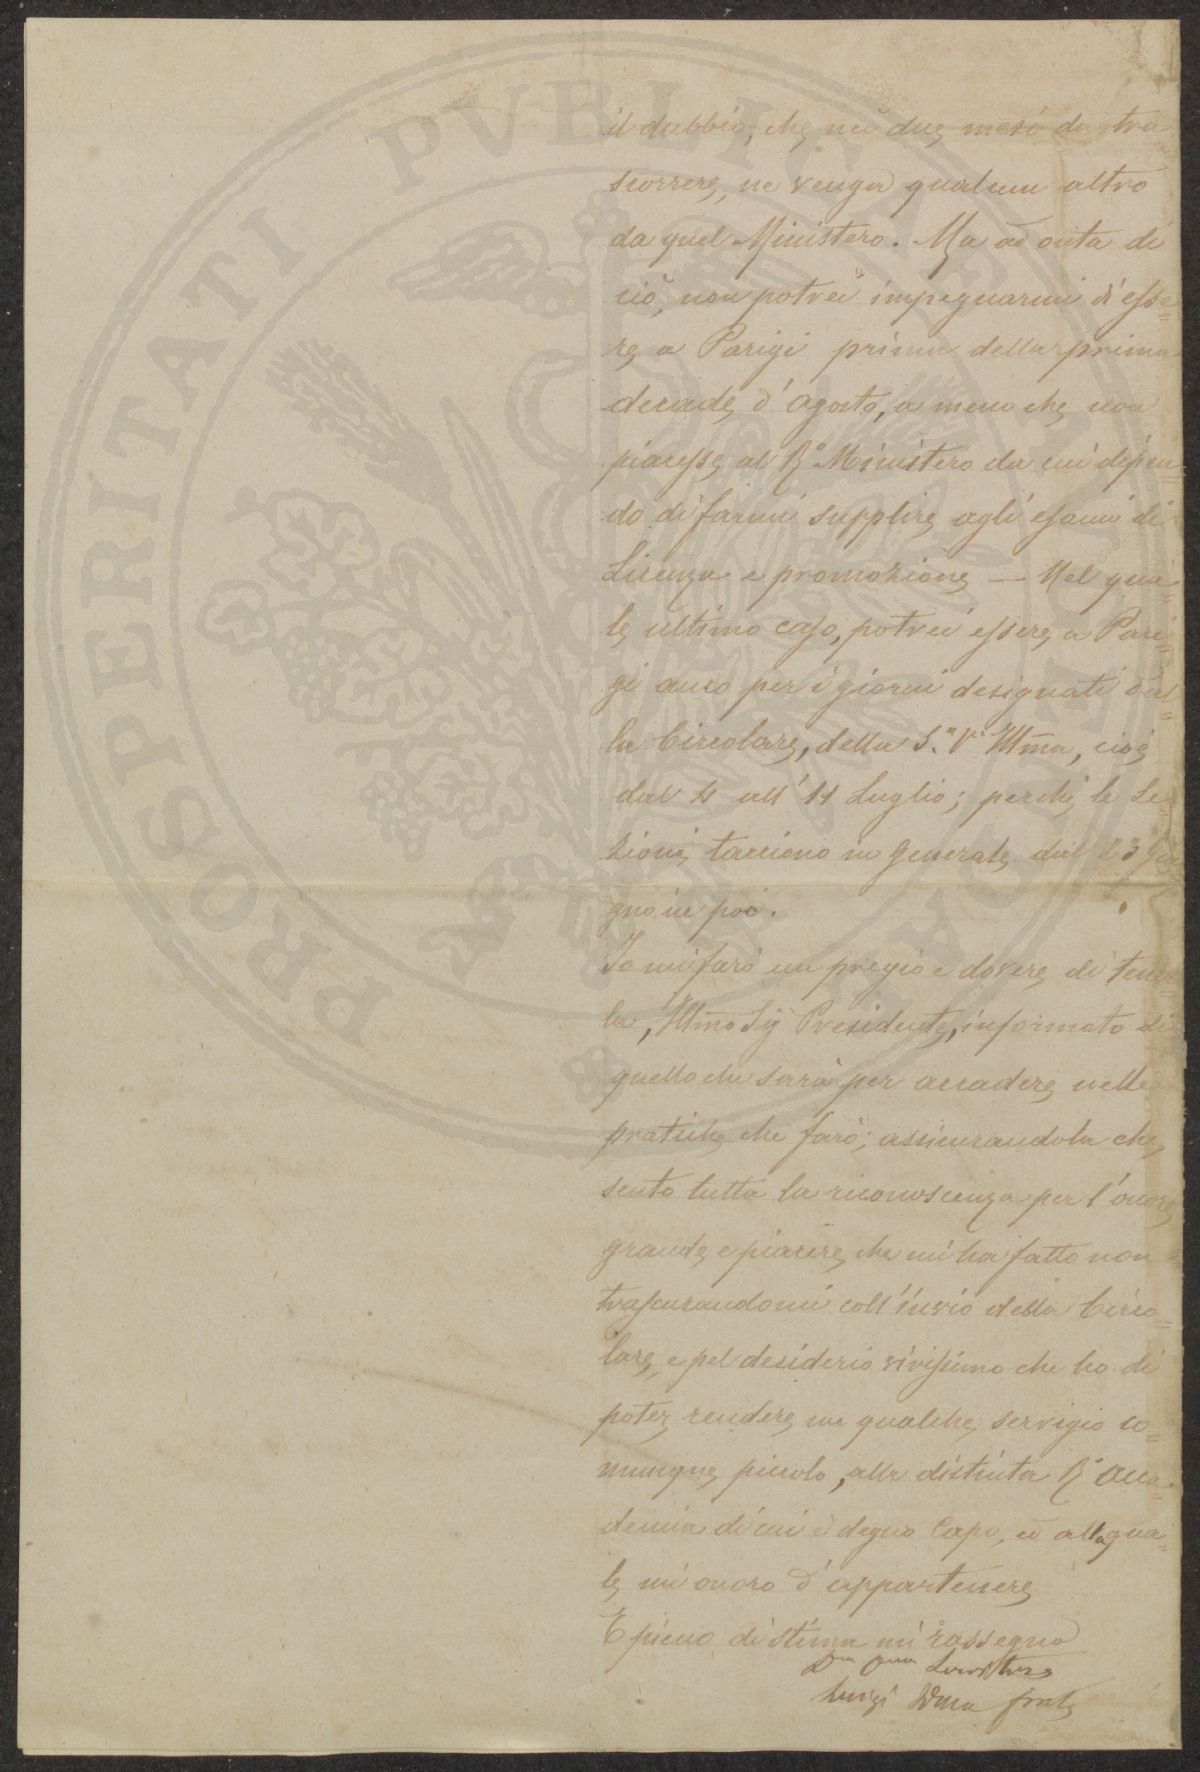 PROSPERITATI PVBLICAE
il dubbio, che nei due mesi da tra
scorrere, ne venga qualcun altro
da quel Ministero. Ma ad onta di
ciò, non potrei impegnarmi d'esse=
re a Parigi prima della prima
decade d'Agosto, a meno che non
piacesse al R.º Ministero da cui dipen=
do di farmi supplire agli esami di
Licenza e promozione — Nel qua=
le ultimo caso, potrei essere a Pari=
gi anco per i giorni designati dal=
la Circolare, della S.ª V.ª Illma, cioè
dal 4 all'11 Luglio; perchè le Le
zioni tacciono in generale dal 23 Giu
gno in poi.
Io mi farò un pregio e dovere di tener
la, Illmo Sig Presidente, informato di
quello che sarà per accadere nelle
pratiche che farò; assicurandola che
sento tutta la riconoscenza per l'onore
grande e piacere che mi ha fatto non
trascurandomi coll'invio della Circo=
lare, e pel desiderio vivissimo che ho di
poter rendere un qualche servigio co=
munque piccolo, alla distinta R.ª Acca=
demia di cui è degno Capo, ed alla qua=
le mi onoro d'appartenere
E pieno di stima mi rassegno
Servitore
Luigi